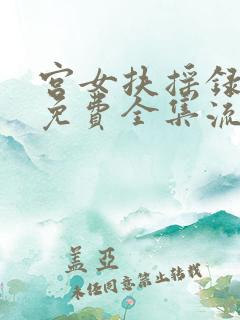 宫女扶摇录
免费全集流
盖亚
未经同意禁止转载